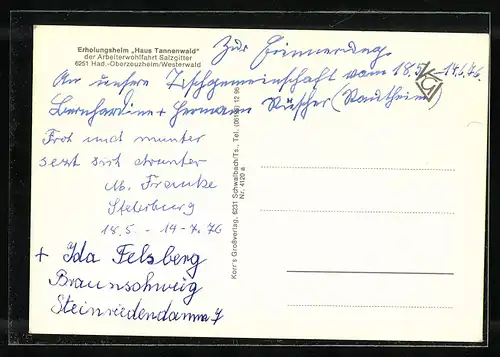 Erholungsheim „Haus Tannenwald"
der Arbeiterwohlfahrt Salzgitter
6251 Had.-Oberzeuzheim/Westerwald
Zur Erinnerung
An unsere Tischgemeinschaft vom 18.5.-14.6.76.
Bernhardine + Hermann Rüscher (Rautheim)
Frot und munter
setzt sich drunter
M. Franke
Stederburg
18.5 - 14-7.76
+ Ida Felsberg
Braunschweig
Steinriedendamm 7
Korr's Großverlag, 6231 Schwalbach/Ts., Tel. 12 96
Nr. 4120 a